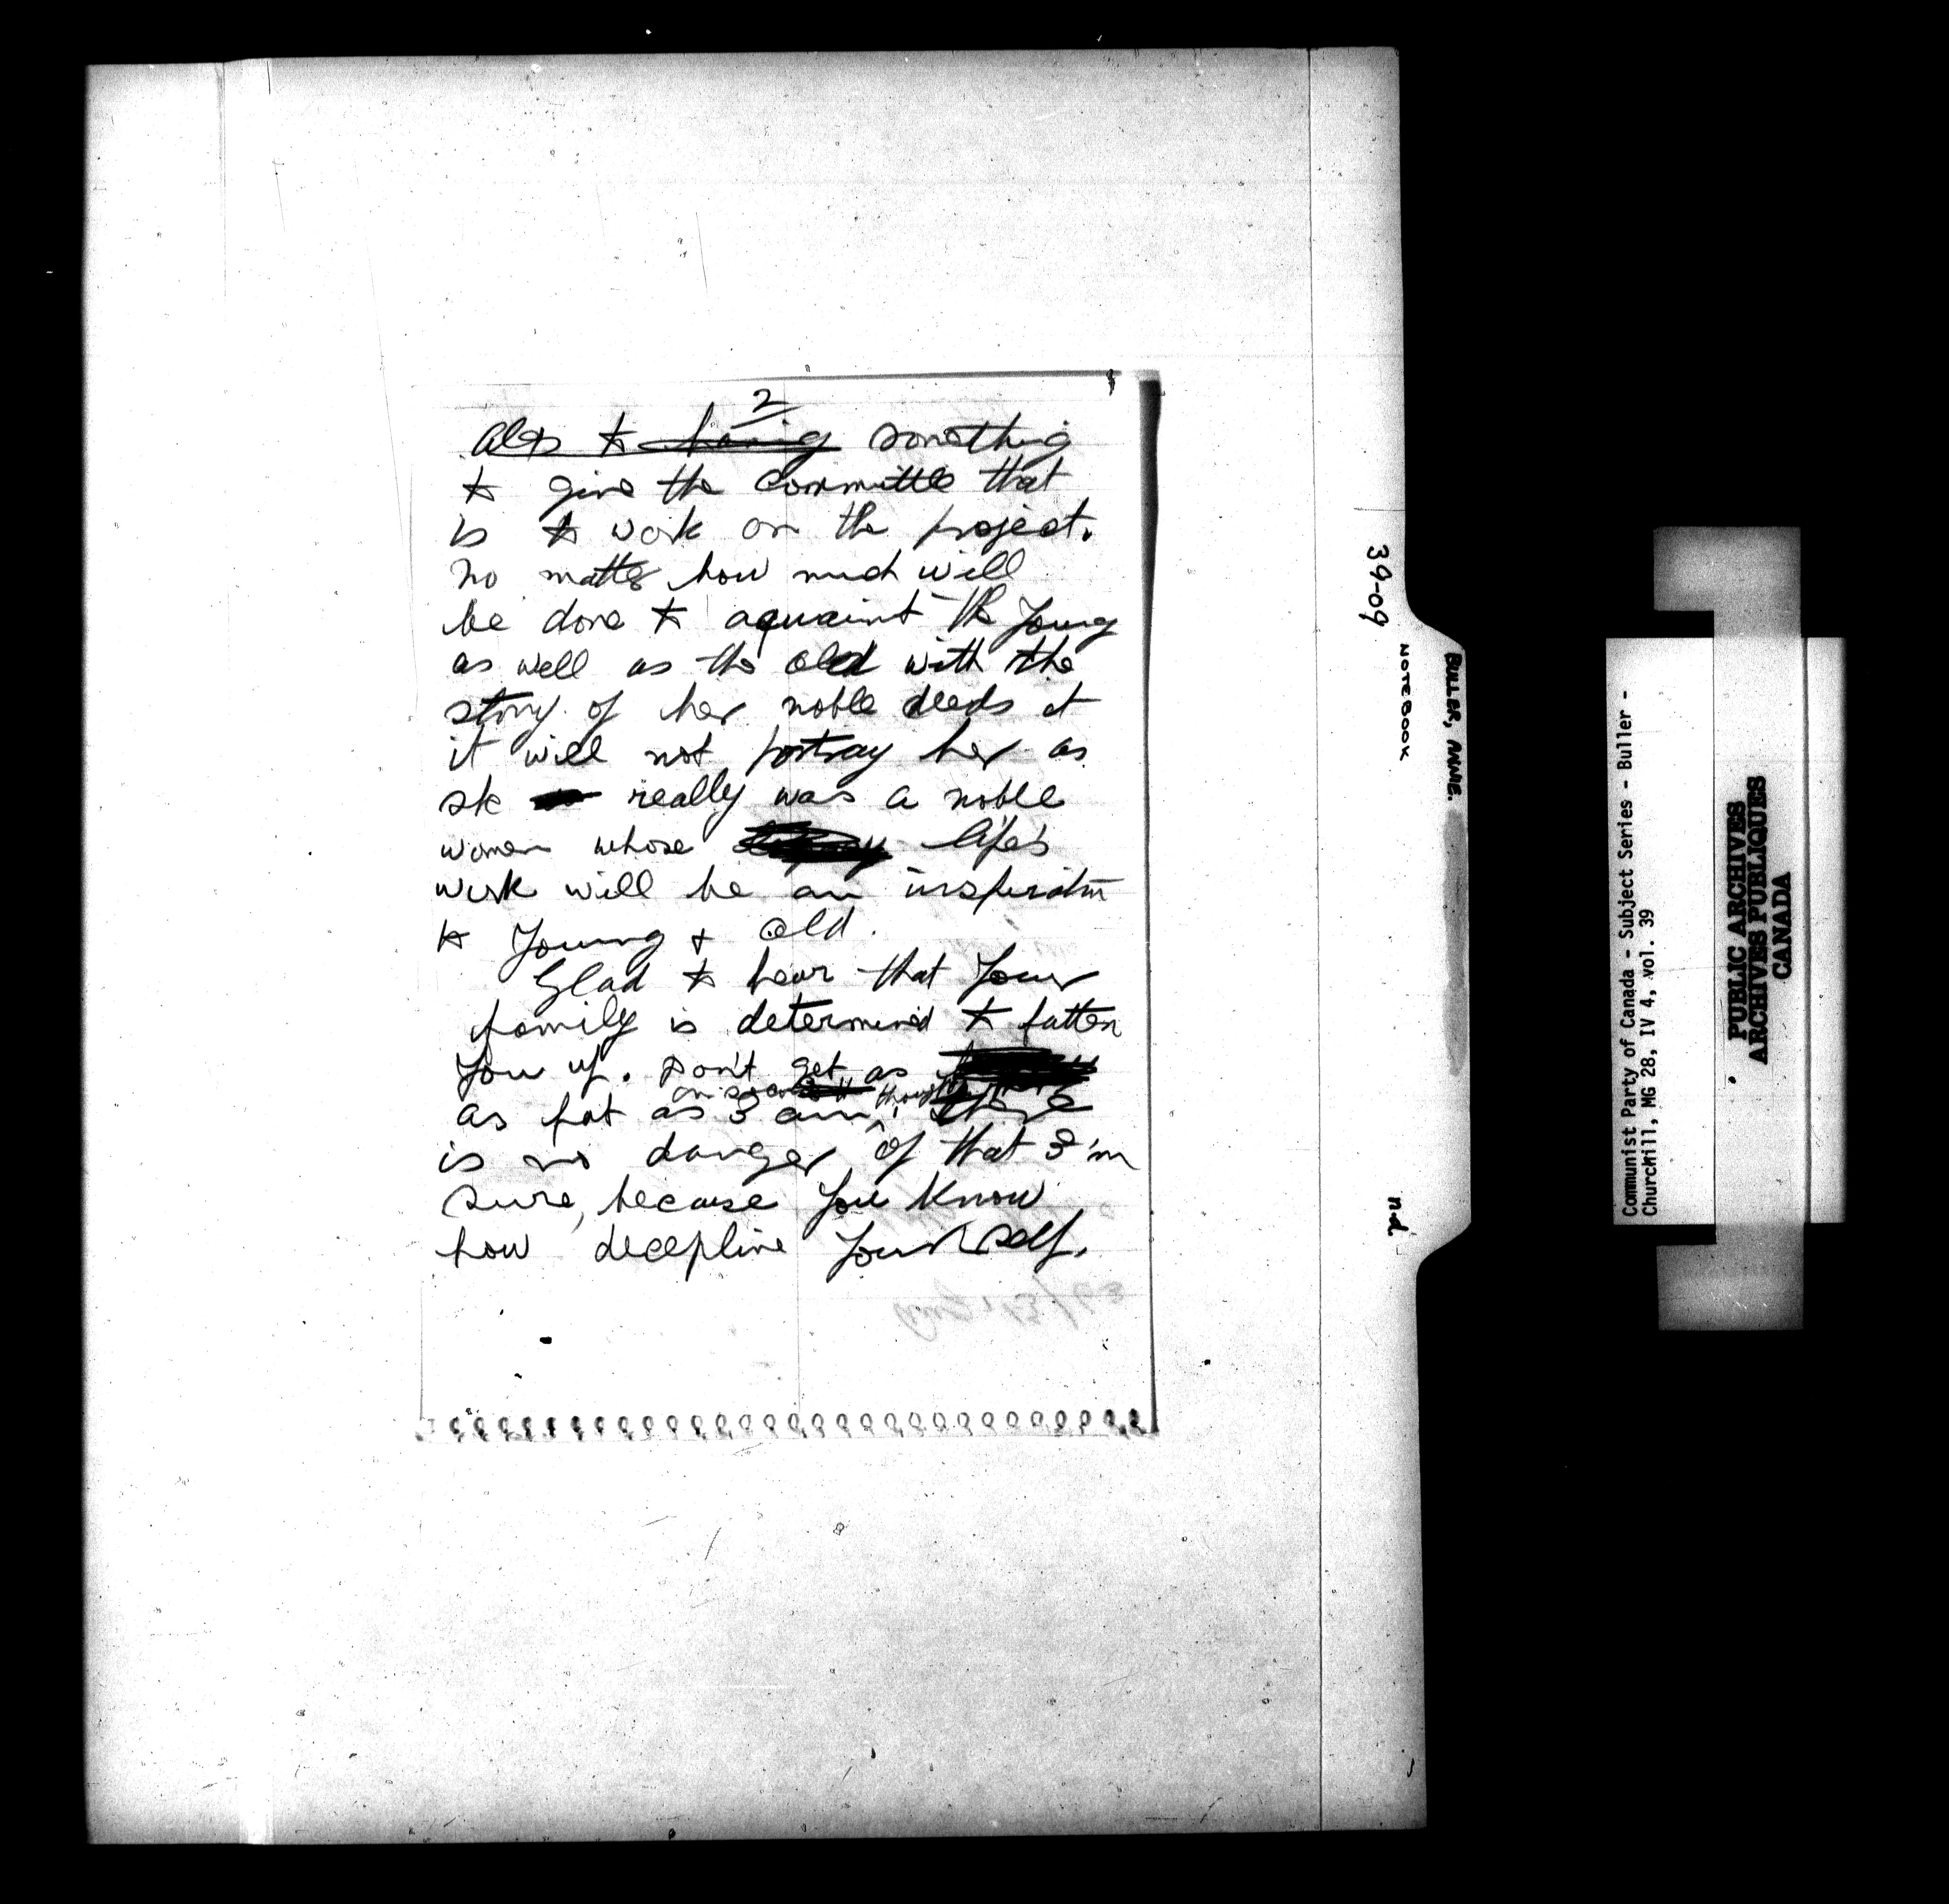 2
also to having something
to give the Committee that
is to work on the project.
no matter how much will
be done to aquaint the young
as well as the old with the
story of her noble deeds it
it will not portray her as
she really was a noble
women whose life's
work will be an inspiration
to young + old.
Glad to hear that your
family is determined to fatten
you up. Don't get as
on second thought
as fat as I am, there
is no danger of that I'm
sure, because you know
how decepline yourself.
39-09
NOTEBOOK
n.d.
BULLER, ANNIE.
Communist Party of Canada - Subject Series - Buller -
Churchill, MG 28, IV 4, vol. 39
PUBLIC ARCHIVES
ARCHIVES PUBLIQUES
CANADA